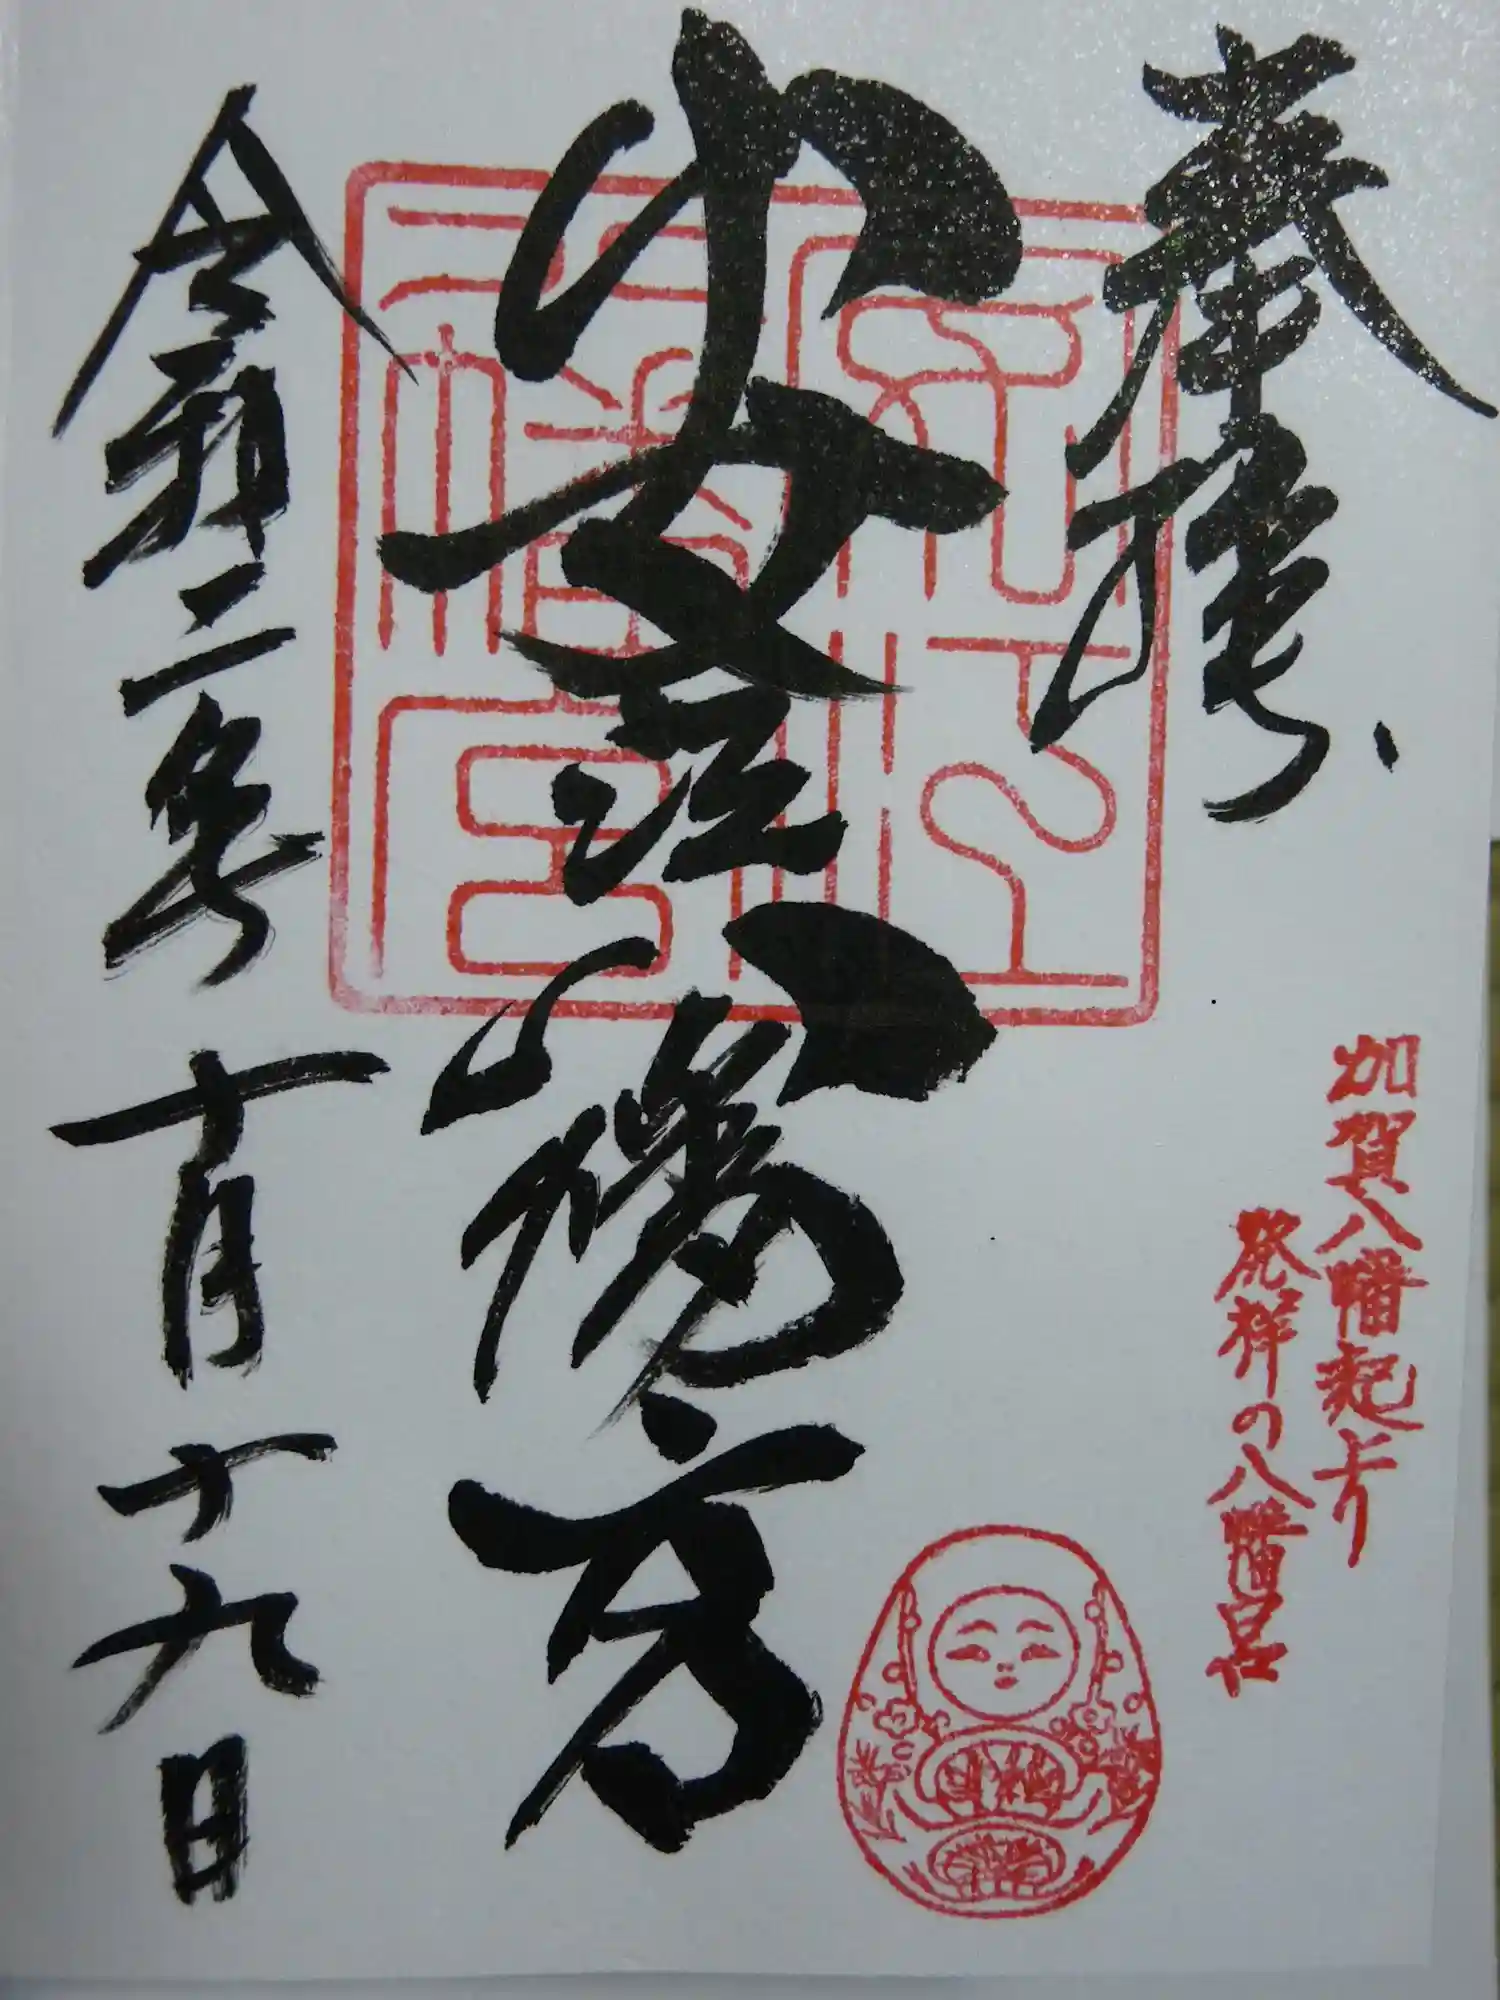 奉拝
安江八幡宮
令和二年十月十九日
加賀八幡起上り
発祥の八幡宮
安江
八幡宮